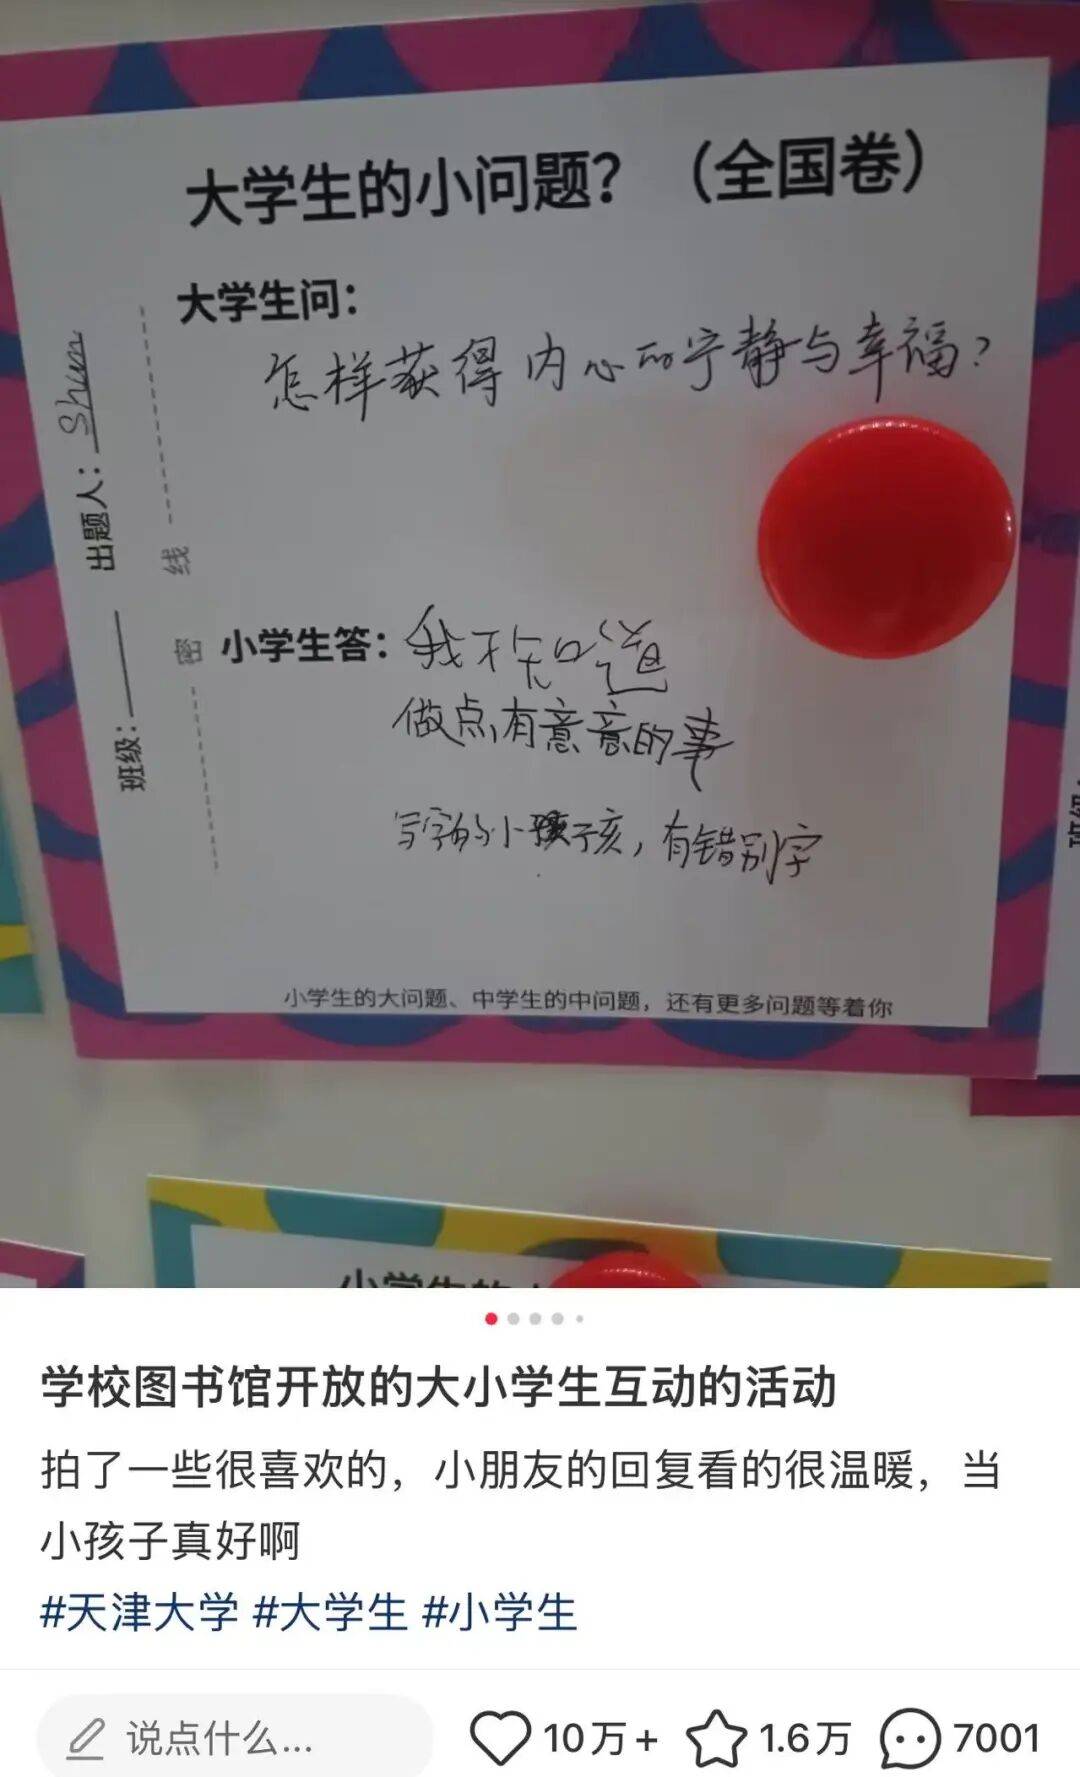 大学生的小问题？（全国卷）
大学生问：
怎样获得内心的宁静与幸福？
出题人：Shun
班级：
密 线
小学生答：我不知道
做点有意意的事
写字的小孩子孩，有错别字
小学生的大问题、中学生的中问题，还有更多问题等着你
班级：
小学生的大
学校图书馆开放的大小学生互动的活动
拍了一些很喜欢的，小朋友的回复看的很温暖，当
小孩子真好啊
#天津大学 #大学生 #小学生
说点什么...
10万+
1.6万
7001